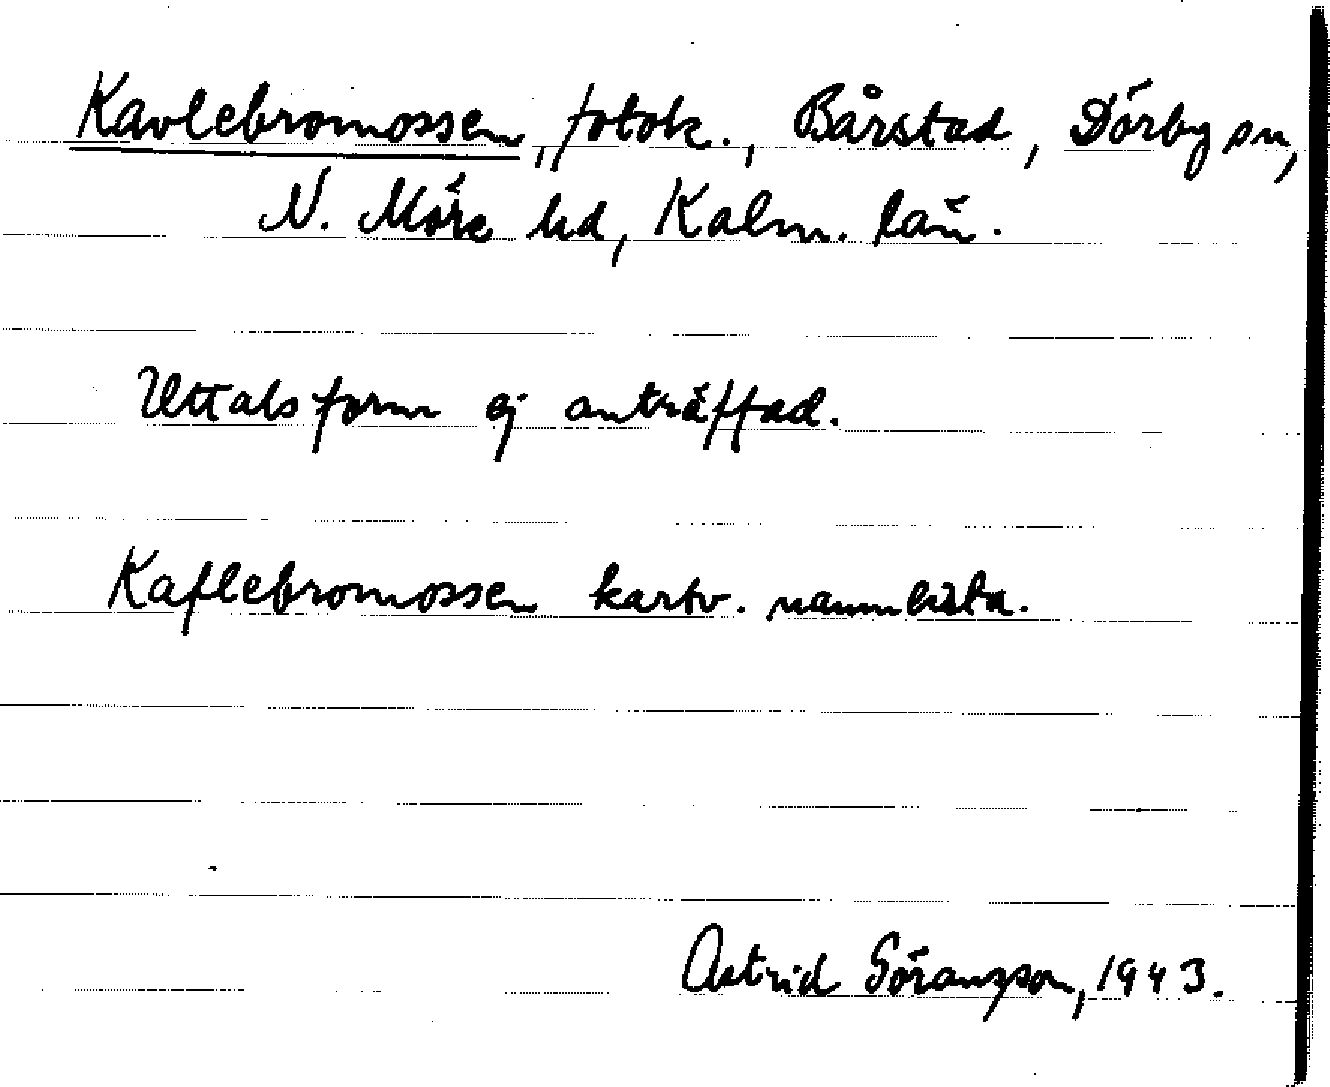 Kavlebromossen, fotok., Bårstad, Dörby sn,
N. Möre hd, Kalm. län.
Uttalsform ej anträffad.
Kaflebromossen kartv. namnlista.
Astrid Göransson, 1943.